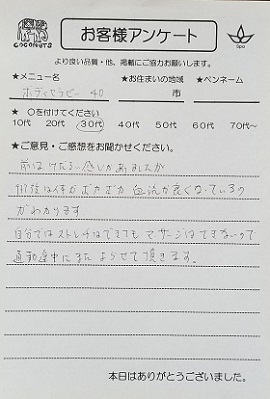 COCONUTS
お客様アンケート
spa
より良い品質・他、掲載にご協力お願いします。
★メニュー名 ★お住まいの地域 ★ペンネーム
ボディセラピー 40 市
★ ○を付けてください
10代 20代 30代 40代 50代 60代 70代〜
★ご意見・ご感想をお聞かせください。
前はけだるい感じがありましたが
術後は体がポカポカ 血流が良くなっているの
がわかります
自分ではストレッチはできてもマッサージはできないので
通勤途中にまた よらせて頂きます。
本日はありがとうございました。